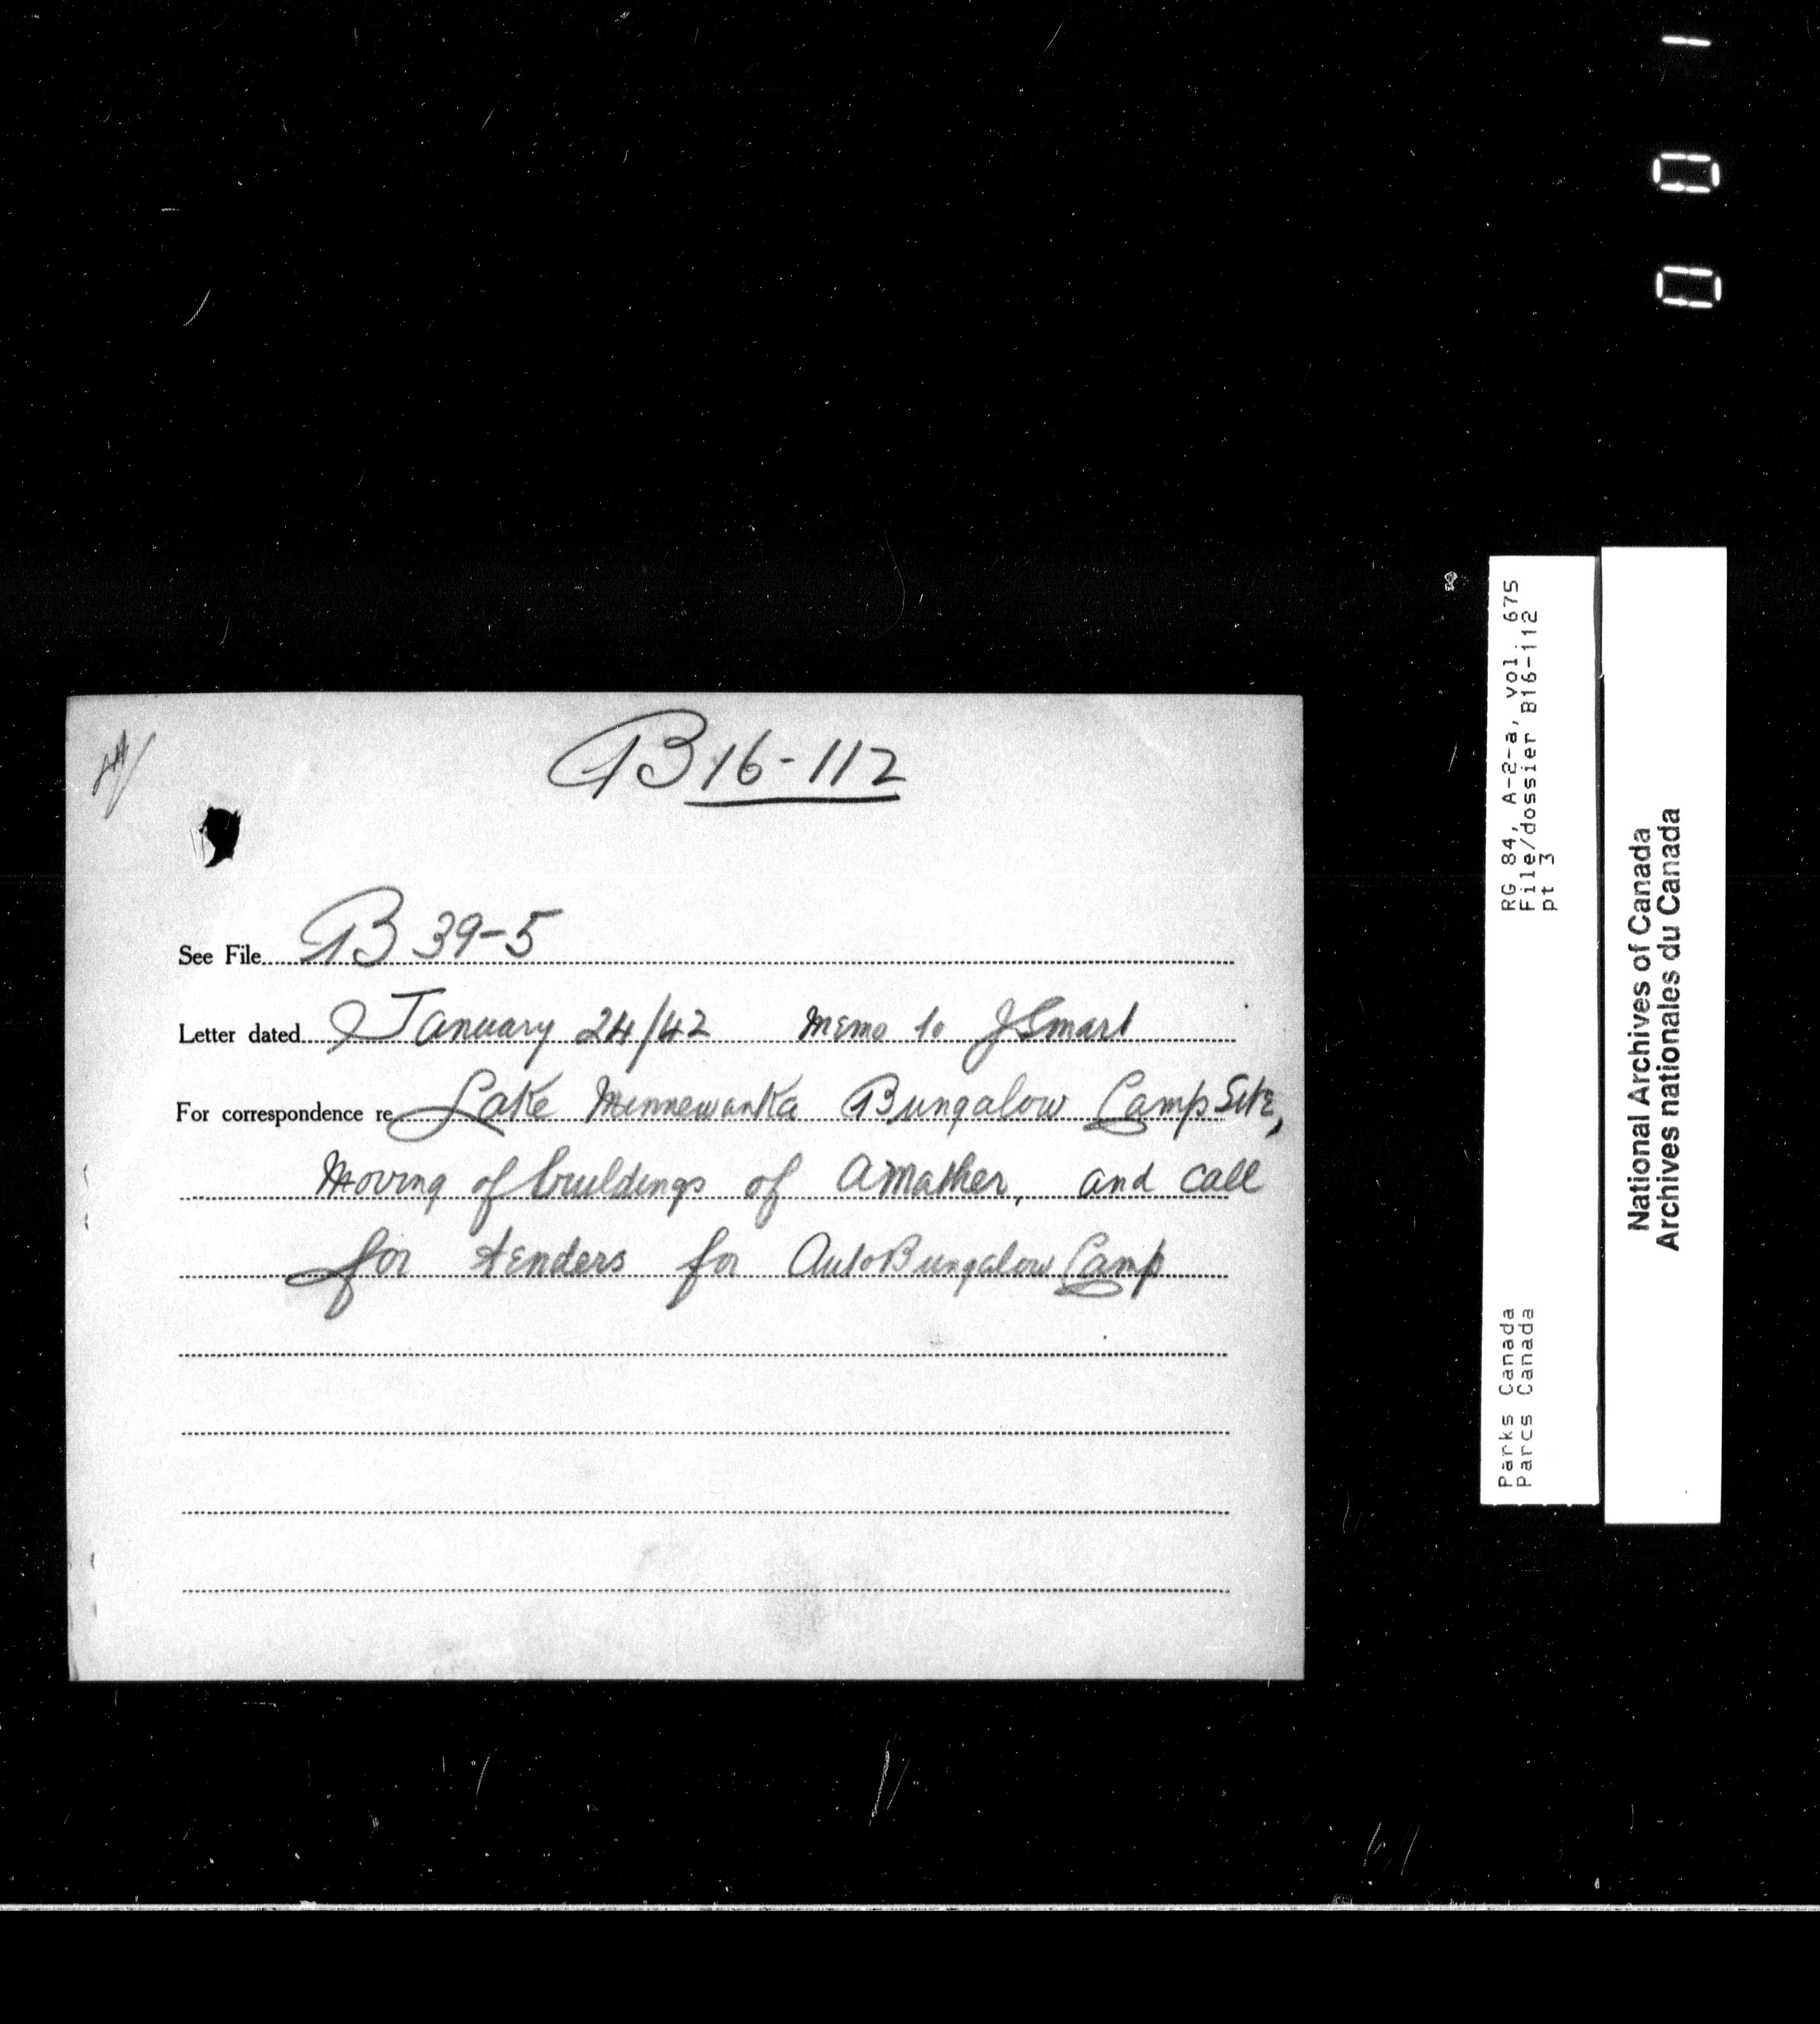 B 16-112
See File B 39-5
Letter dated January 24/42 Memo to J Smart
For correspondence re Lake Minnewanka Bungalow Camp Site,
Moving of buildings of A Mather, and call
for tenders for Auto Bungalow Camp
RG 84, A-2-a, vol. 675
File/dossier B16-112
pt 3
Parks Canada
Parcs Canada
National Archives of Canada
Archives nationales du Canada
001